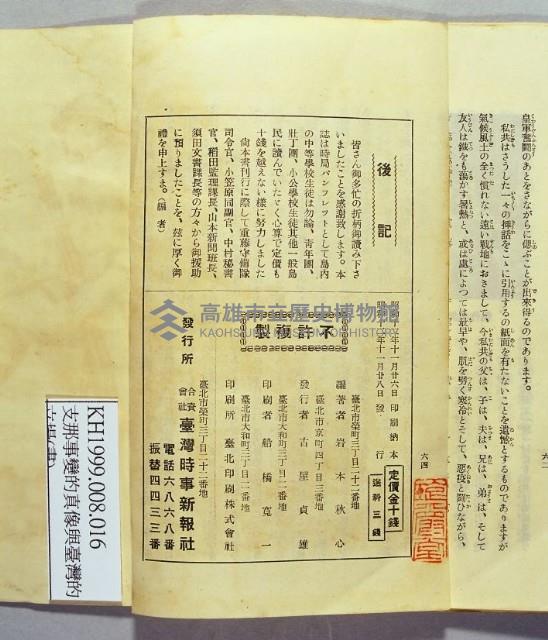 皇軍奮鬪のあとをさながらに偲ぶことが出來得るのであります。
私共はさうした一々の挿話をこゝに引用するの紙面を有たないことを遺憾とするものでありますが
氣候風土の全く慣れない遠い戰地におきまして、今私共の父は、子は、夫は、兄は、弟は、そして
友人は鐵をも蕩かす暑熱と、或は處によつては最早や、肌を劈く寒冷とそして、惡疫と鬪ひながら、
六四
後記
皆さん御多忙の折柄御讀み下さ
いましたことを感謝致します。本
誌は時局パンフレットとして島內
の中等學校生徒は勿論、靑年團、
壯丁團、小公學校生徒其他一般島
民に讀んでいたゞく心算で定價も
十錢を越えない樣に努力しました
尙本書刊行に際して重藤守備隊
司令官、小笠原同副官、中村秘書
官、稻田監理課長、山本新聞班長、
須田文書課長等の方々から御援助
に預りましたことを、玆に厚く御
禮を申上ます。（編者）
年十一月廿六日印刷納本
年十一月廿八日發行
定價金十錢
送料三錢
不許複製
臺北市榮町三丁目二十二番地
編著者 岩本秋心
臺北市京町四丁目三番地
發行者 古屋貞雄
臺北市大和町三丁目二番地
印刷者 船橋寬一
臺北市大和町三丁目二番地
印刷所 臺北印刷株式會社
發行所
臺北市榮町三丁目二十二番地
合資會社 臺灣時事新報社
電話六八六八番
振替四四三三番
高雄市立歷史博物館
KAOHSIUNG MUSEUM OF HISTORY
KH1999.008.016
支那事變的真像與臺灣的